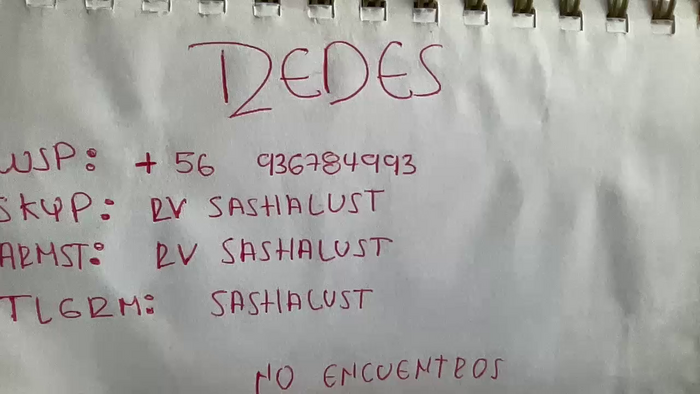 REDES
WSP: + 56 936784993
SKYP: RV SASHALUST
ARMST: RV SASHALUST
TLGRM: SASHALUST
NO ENCUENTROS